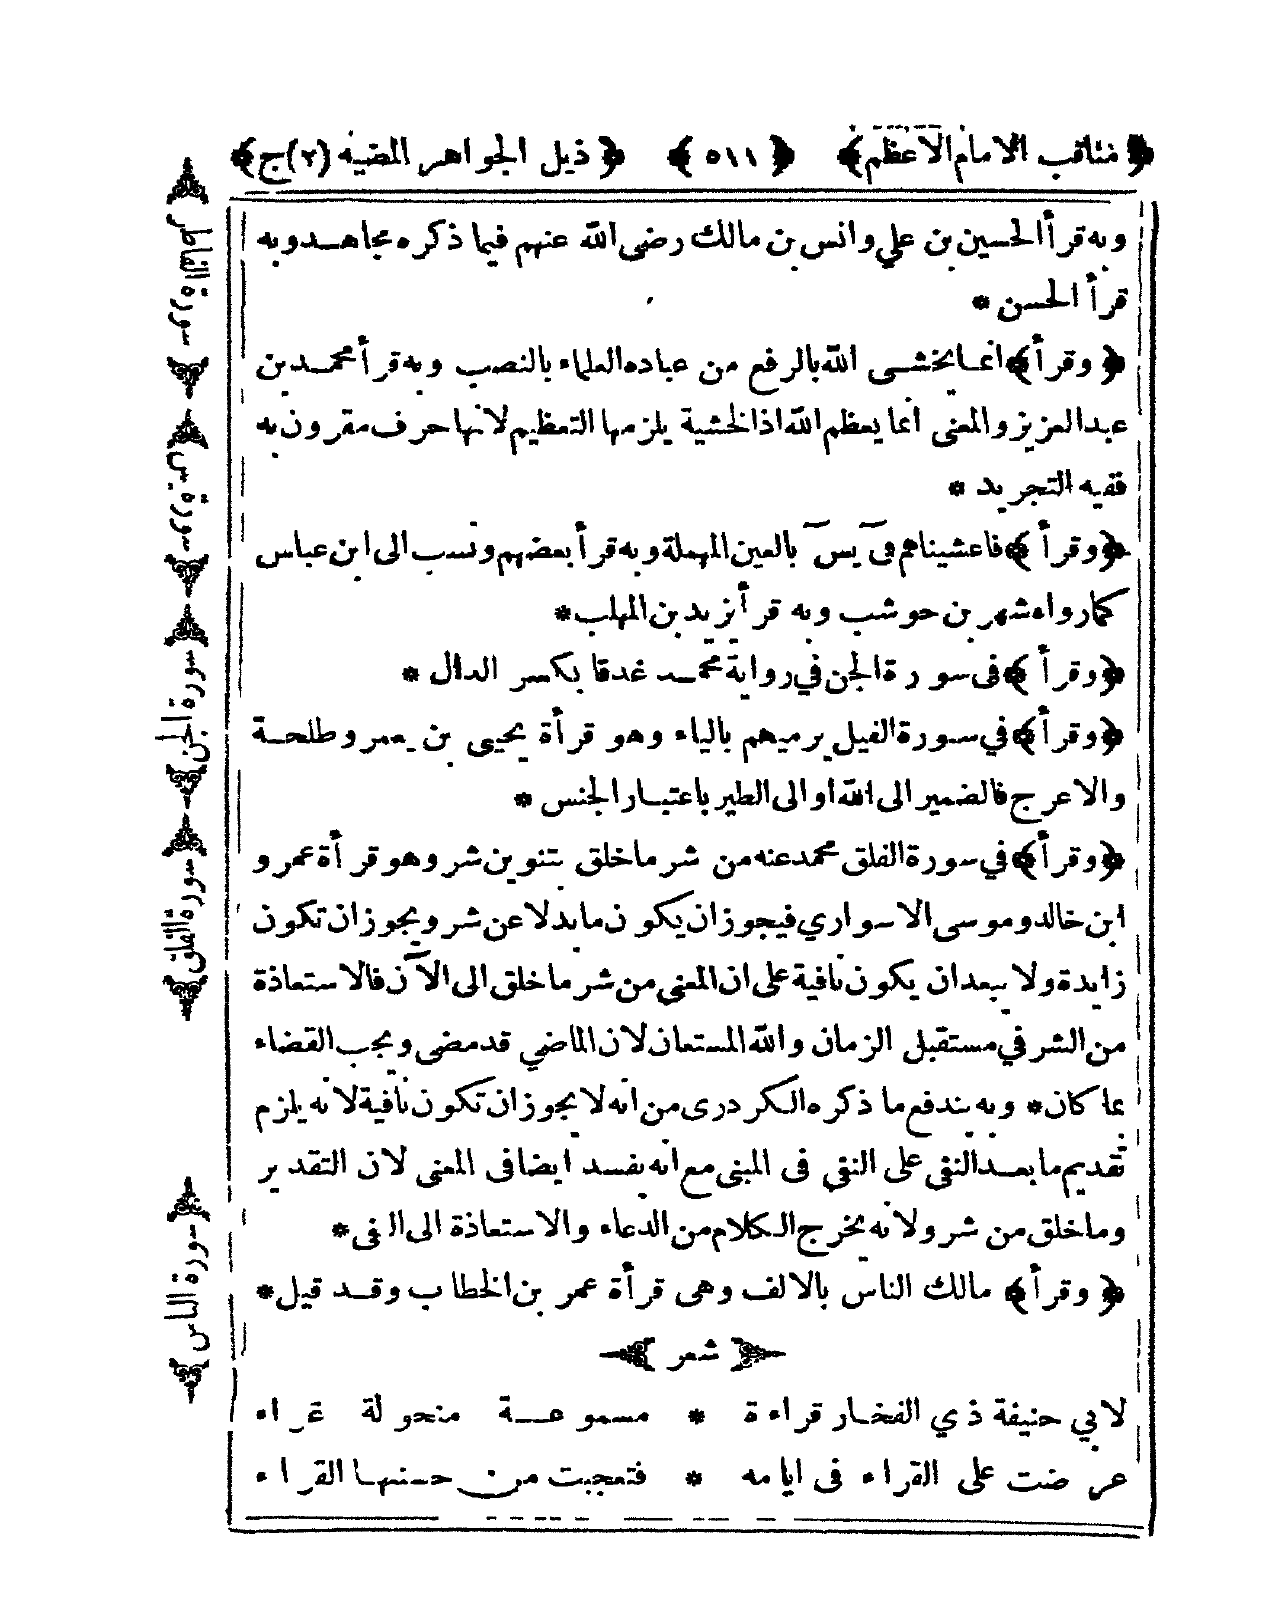 ﴿ مناقب الامام الاعظم ﴾ ﴿ ٥١١ ﴾ ﴿ ذيل الجواهر المضيه (٢) ج ﴾
وبه قرأ الحسين بن علي وانس بن مالك رضى الله عنهم فيما ذكره مجاهد وبه
قرأ الحسن *
﴿ وقرأ ﴾ انما يخشى الله بالرفع من عباده العلماء بالنصب وبه قرأ محمد بن
عبد العزيز والمعنى انما يعظم الله اذ الخشية يلزمها التعظيم لانها حرف مقرون به
ففيه التجريد *
﴿ وقرأ ﴾ فاعشيناهم فى يس بالعين المهملة وبه قرأ بعضهم ونسب الى ابن عباس
كمارواه شهر بن حوشب وبه قرأ يزيد بن المهلب *
﴿ وقرأ ﴾ فى سورة الجن في رواية محمد غدقا بكسر الدال *
﴿ وقرأ ﴾ في سورة الفيل يرميهم بالياء وهو قرأة يحيى بن يعمر وطلحة
والاعرج فالضمير الى الله او الى الطير باعتبار الجنس *
﴿ وقرأ ﴾ في سورة الفلق محمد عنه من شر ماخلق بتنوين شر وهو قرأة عمرو
ابن خالد وموسى الاسواري فيجوز ان يكون ما بدلا عن شر ويجوز ان تكون
زايدة ولا يبعد ان يكون نافية على ان المعنى من شر ماخلق الى الآن فالاستعاذة
من الشر في مستقبل الزمان والله المستعان لان الماضي قد مضى ويجب القضاء
بما كان * وبه يندفع ما ذكره الكردرى من انه لا يجوز ان تكون نافية لانه يلزم
تقديم ما بعد النفى على النفى فى المبنى مع انه يفسد ايضا فى المعنى لان التقدير
وماخلق من شر ولانه يخرج الكلام من الدعاء والاستعاذة الى النفى *
﴿ وقرأ ﴾ مالك الناس بالالف وهى قرأة عمر بن الخطاب وقد قيل *
شعر
لابي حنيفة ذي الفخار قراءة * مسموعة منحولة غراء
عرضت على القراء فى ايامه * فتعجبت من حسنها القراء
سورة الفاطر
سورة يس
سورة الجن
سورة الفلق
سورة الناس